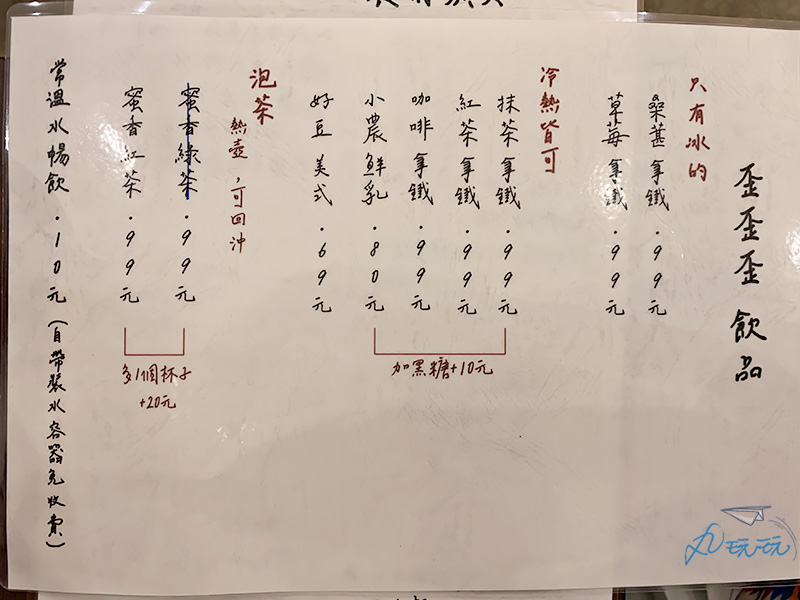 歪歪歪 飲品
只有冰的
桑葚拿鐵.99元
草莓拿鐵.99元
冷熱皆可
抹茶拿鐵.99元
紅茶拿鐵.99元
咖啡拿鐵.99元
小農鮮乳.80元
加黑糖+10元
好豆美式.69元
泡茶
熱壺,可回沖
蜜香綠茶.99元
蜜香紅茶.99元
多1個杯子
+20元
常溫水暢飲.10元(自帶裝水容器免收費)